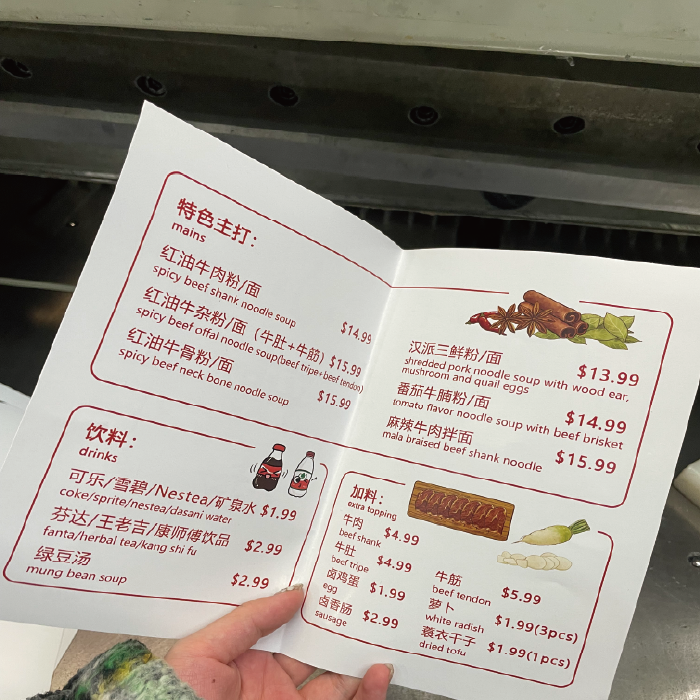 特色主打：
mains
红油牛肉粉/面
spicy beef shank noodle soup $14.99
红油牛杂粉/面（牛肚+牛筋）
spicy beef offal noodle soup(beef tripe+beef tendon) $15.99
红油牛骨粉/面
spicy beef neck bone noodle soup $15.99
汉派三鲜粉/面 $13.99
shredded pork noodle soup with wood ear,
mushroom and quail eggs
番茄牛腩粉/面 $14.99
tomato flavor noodle soup with beef brisket
麻辣牛肉拌面 $15.99
mala braised beef shank noodle
饮料：
drinks
可乐/雪碧/Nestea/矿泉水 $1.99
coke/sprite/nestea/dasani water
芬达/王老吉/康师傅饮品 $2.99
fanta/herbal tea/kang shi fu
绿豆汤 $2.99
mung bean soup
加料：
extra topping
牛肉 $4.99
beef shank
牛肚 $4.99
beef tripe
卤鸡蛋 $1.99
egg
卤香肠 $2.99
sausage
牛筋 $5.99
beef tendon
萝卜 $1.99(3pcs)
white radish
蓑衣干子 $1.99(1pcs)
dried tofu